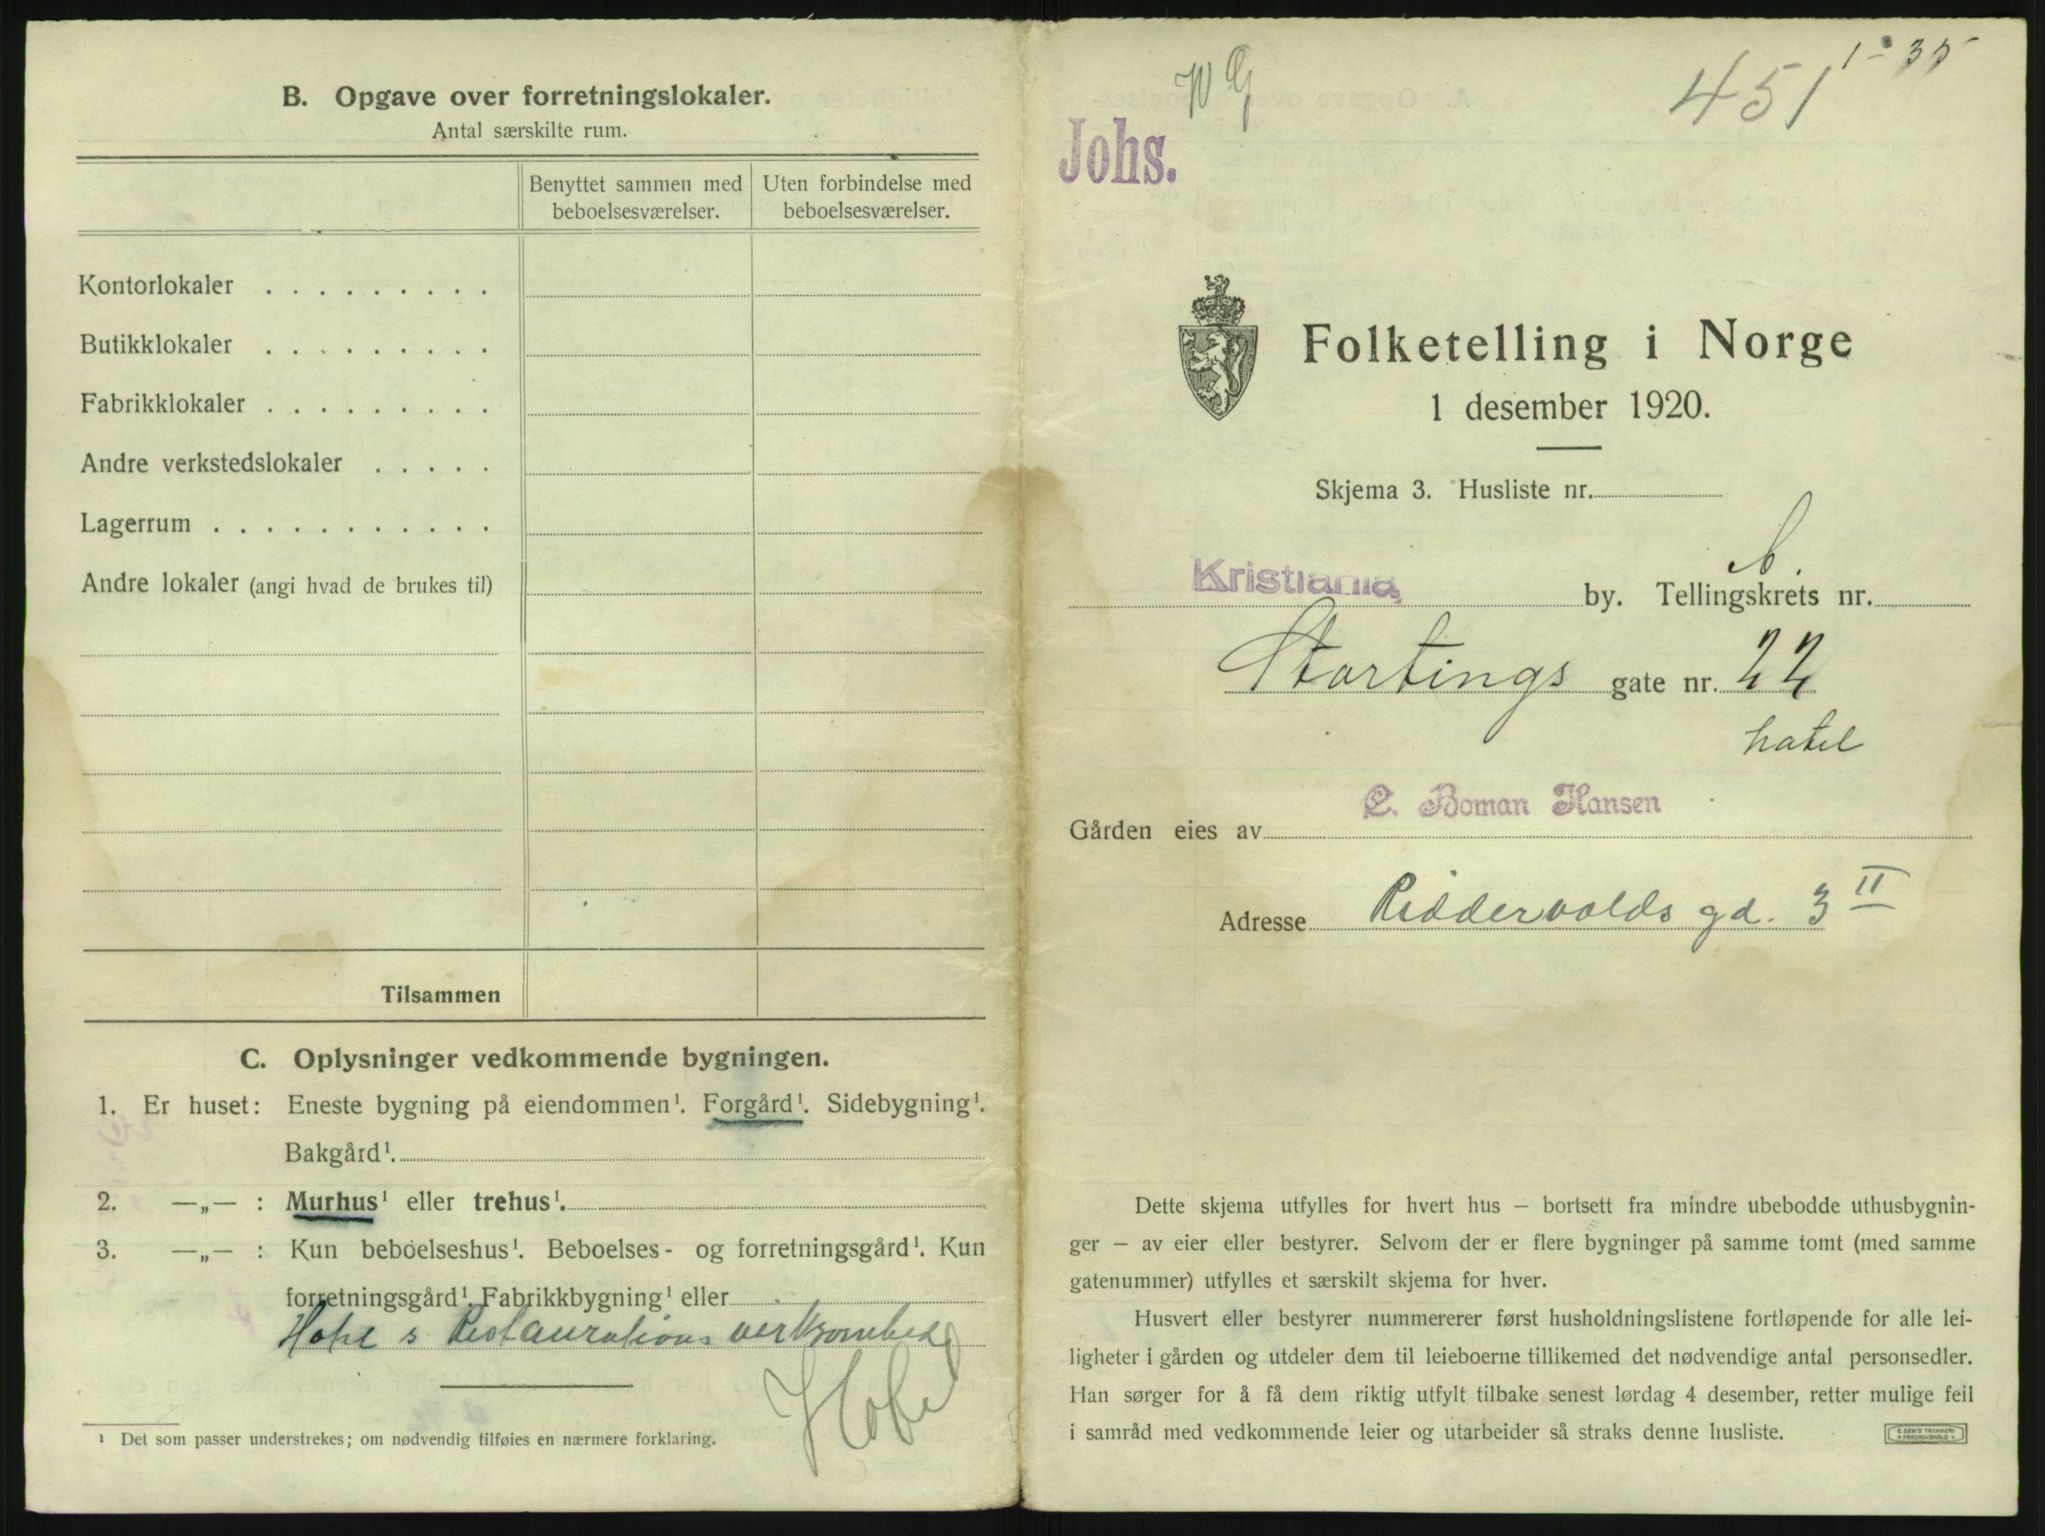 B. Opgave over forretningslokaler.
Antal særskilte rum.
Benyttet sammen med beboelsesværelser.
Uten forbindelse med beboelsesværelser.
Kontorlokaler . . . . . . . . .
Butikklokaler . . . . . . . . .
Fabrikklokaler . . . . . . . . .
Andre verkstedslokaler . . . . .
Lagerrum . . . . . . . . . . . .
Andre lokaler (angi hvad de brukes til)
Tilsammen
C. Oplysninger vedkommende bygningen.
1. Er huset: Eneste bygning på eiendommen¹. Forgård¹. Sidebygning¹.
Bakgård¹.
2. —„— : Murhus¹ eller trehus¹.
3. —„— : Kun beboelseshus¹. Beboelses- og forretningsgård¹. Kun
forretningsgård¹. Fabrikkbygning¹ eller
Hotel s Restaurations verksomhed
Hotel
¹ Det som passer understrekes; om nødvendig tilføies en nærmere forklaring.
451 1-35
Johs.
Folketelling i Norge
1 desember 1920.
Skjema 3. Husliste nr.
Kristiania by. Tellingskrets nr.
Stortings gate nr. 22
hotel
Gården eies av C. Boman Hansen
Adresse Riddervolds gd. 3 II
Dette skjema utfylles for hvert hus — bortsett fra mindre ubebodde uthusbygnin-
ger — av eier eller bestyrer. Selvom der er flere bygninger på samme tomt (med samme
gatenummer) utfylles et særskilt skjema for hver.
Husvert eller bestyrer nummererer først husholdningslistene fortløpende for alle lei-
ligheter i gården og utdeler dem til leieboerne tillikemed det nødvendige antal personsedler.
Han sørger for å få dem riktig utfylt tilbake senest lørdag 4 desember, retter mulige feil
i samråd med vedkommende leier og utarbeider så straks denne husliste.